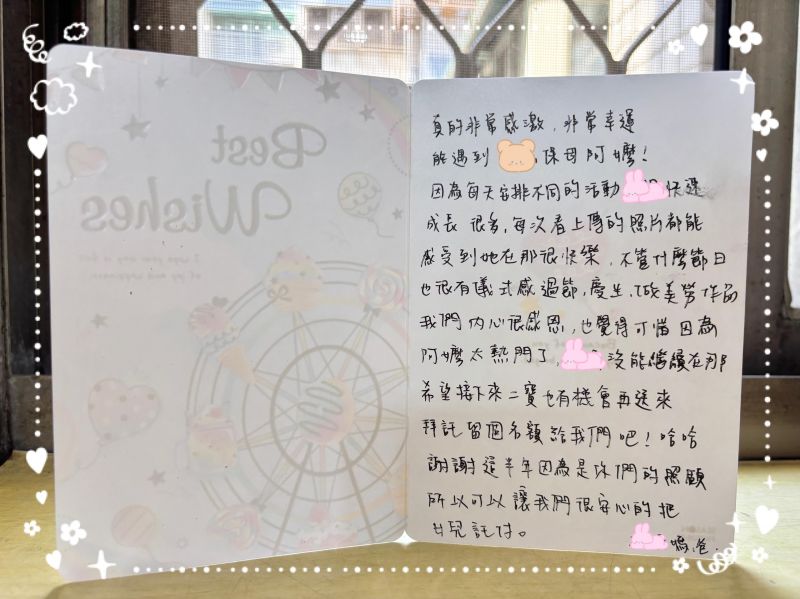 Best
Wishes
真的非常感激,非常幸運
能遇到 保母阿嬤!
因為每天安排不同的活動 快速
成長很多,每次看上傳的照片都能
感受到她在那很快樂,不管什麼節日
也很有儀式感過節,慶生、做美勞作品
我們內心很感恩,也覺得可惜因為
阿嬤太熱門了, 沒能繼續在那
希望接下來二寶也有機會再送來
拜託留個名額給我們吧!哈哈
謝謝這半年因為是你們的照顧
所以可以讓我們很安心的把
女兒託付。
媽.爸.